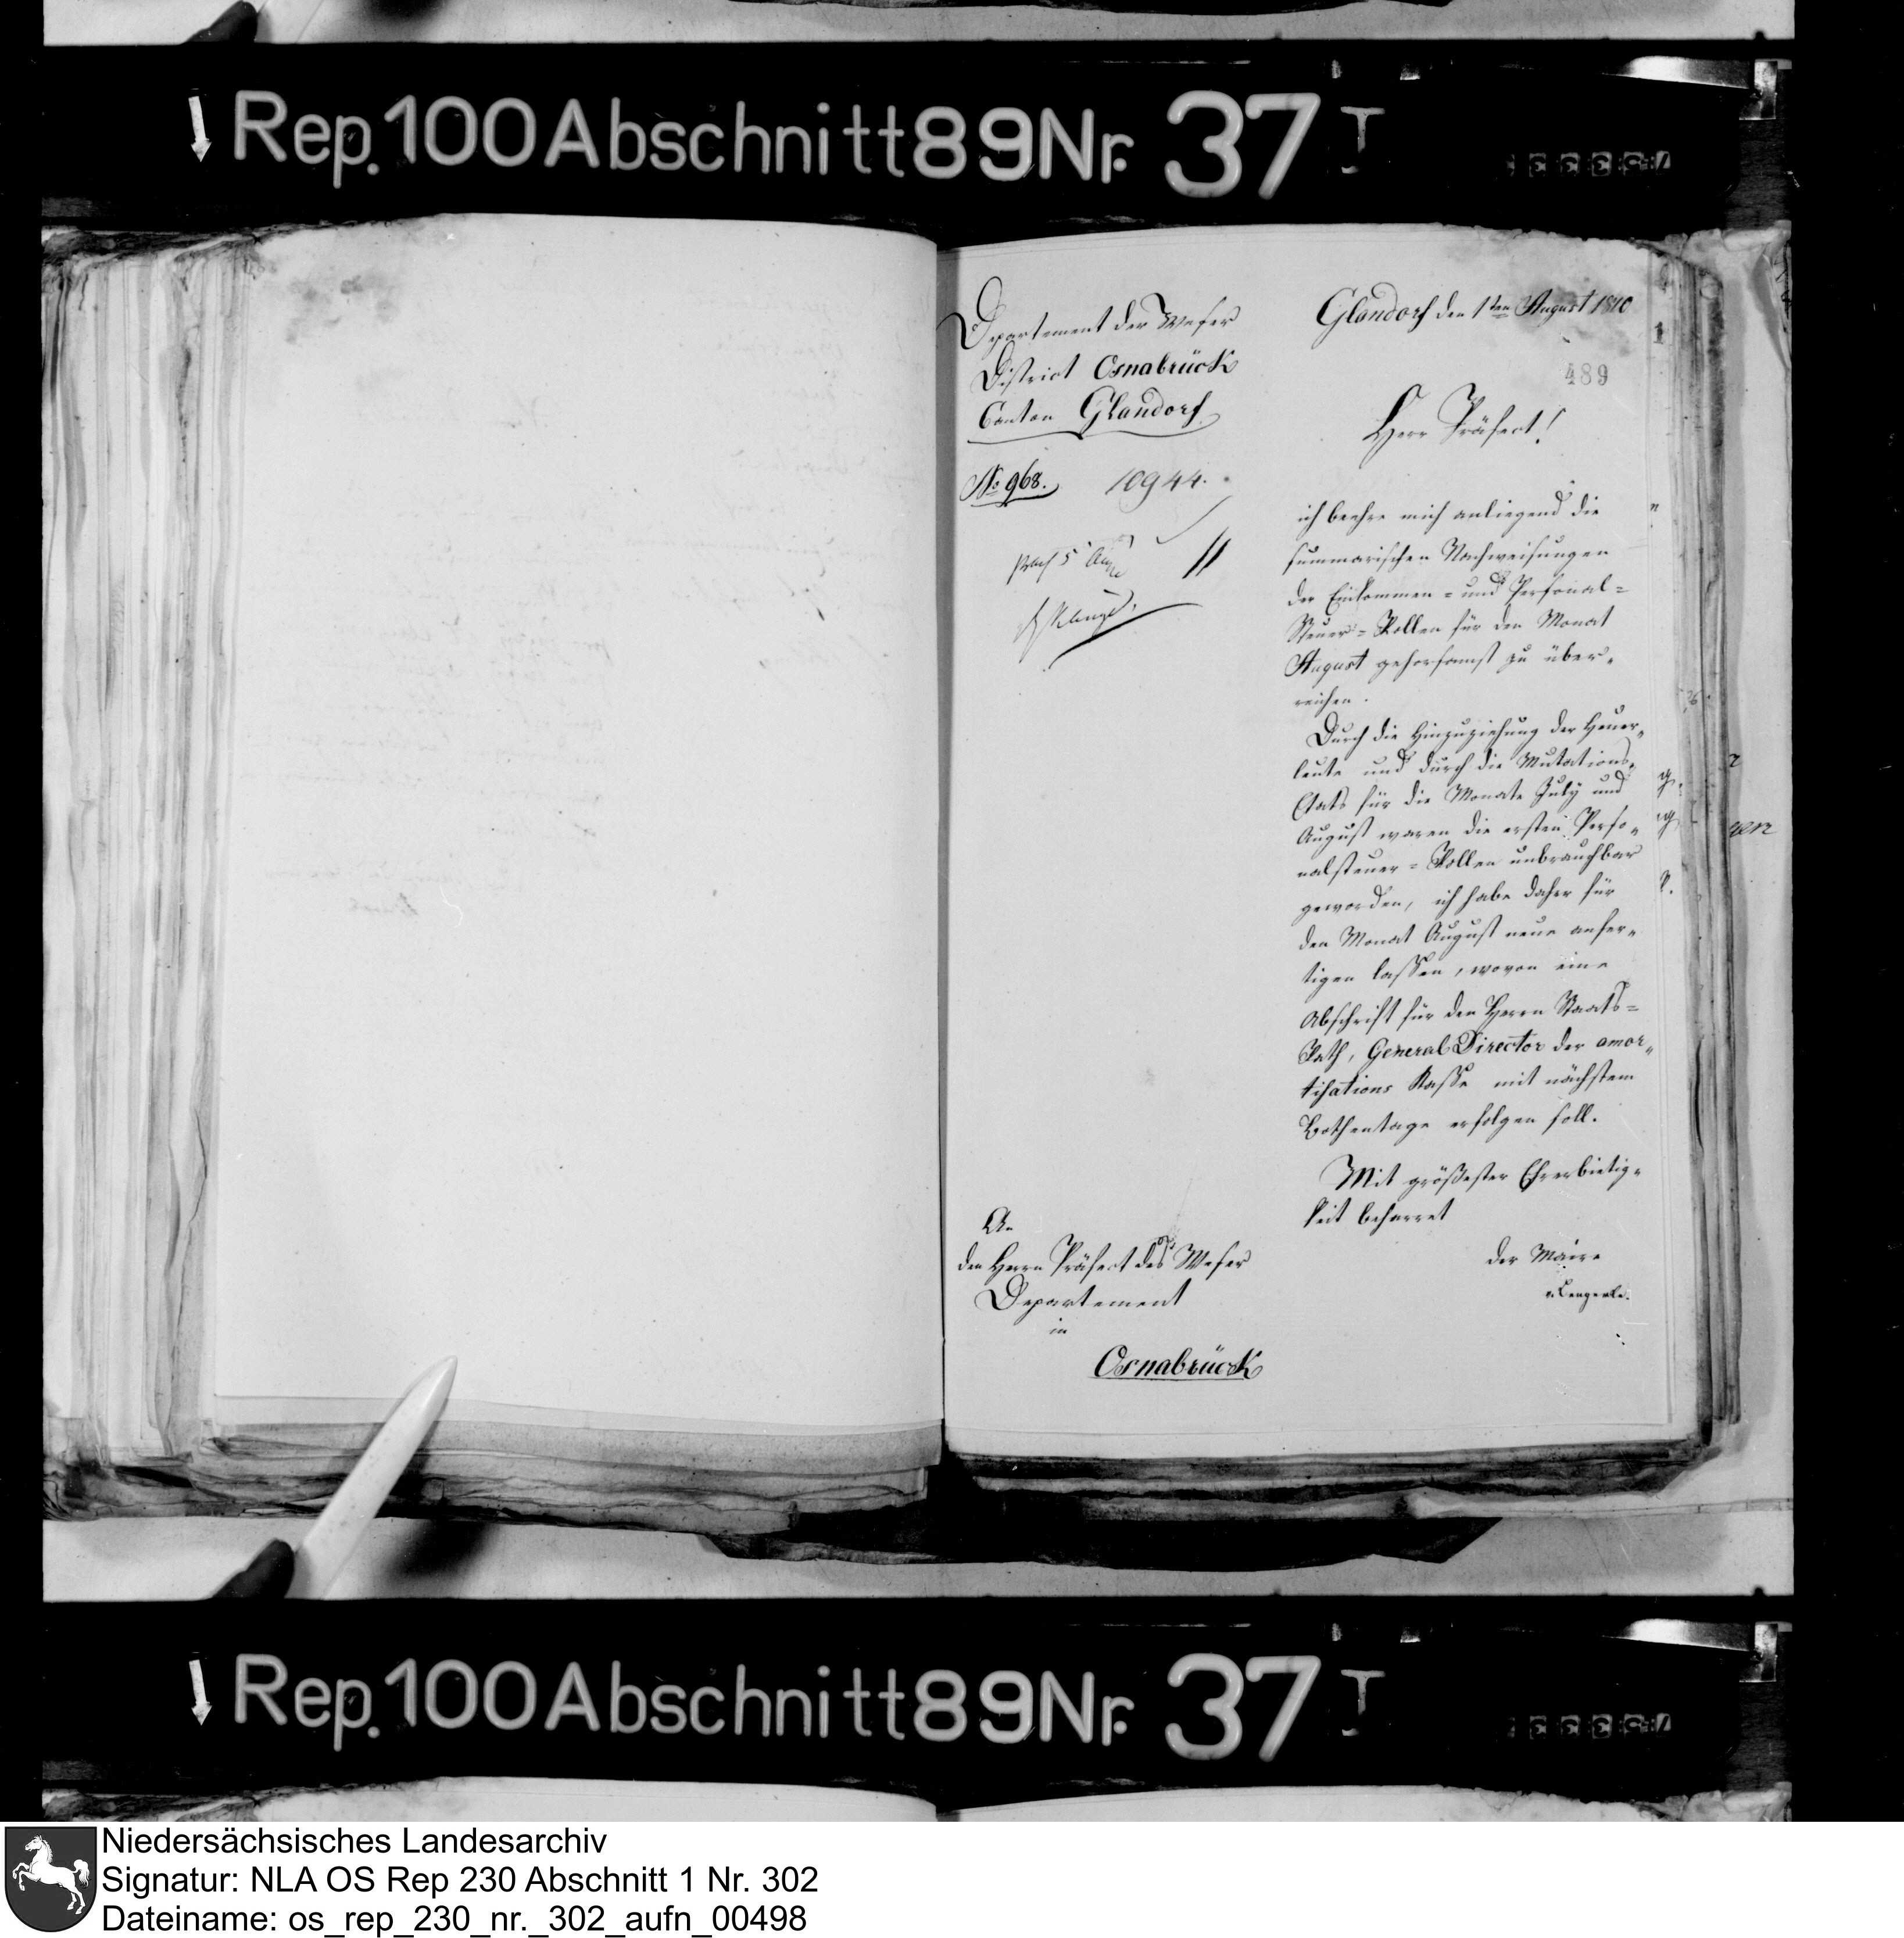 Rep. 100 Abschnitt 89 Nr. 37 I
Departement der Weser
District Osnabrück
Canton Glandorf
No 968.
10944.
Glandorf den 1ten August 1810
489
Herr Präfect!
ich beehre mich anliegend die
summarischen Nachweisungen
der Einkommen= und Personal=
Steuer=Rollen für den Monat
August gehorsamst zu über-
reichen.
Durch die Hinzuziehung der Heuer-
leute und durch die Mutations-
Etats für die Monate July und
August waren die ersten Perso-
nalsteuer=Rollen unbrauchbar
geworden, ich habe daher für
den Monat August neue anfer-
tigen lassen, wovon eine
Abschrift für den Herrn Staats=
Rath, General Director der amor-
tisations Kasse mit nächstem
Bothentage erfolgen soll.
Mit größester Ehrerbietig-
keit beharret
der Maire
v. Lengerke.
An
den Herrn Präfect des Weser
Departement
in
Osnabrück
Rep. 100 Abschnitt 89 Nr. 37 I
Niedersächsisches Landesarchiv
Signatur: NLA OS Rep 230 Abschnitt 1 Nr. 302
Dateiname: os_rep_230_nr._302_aufn_00498